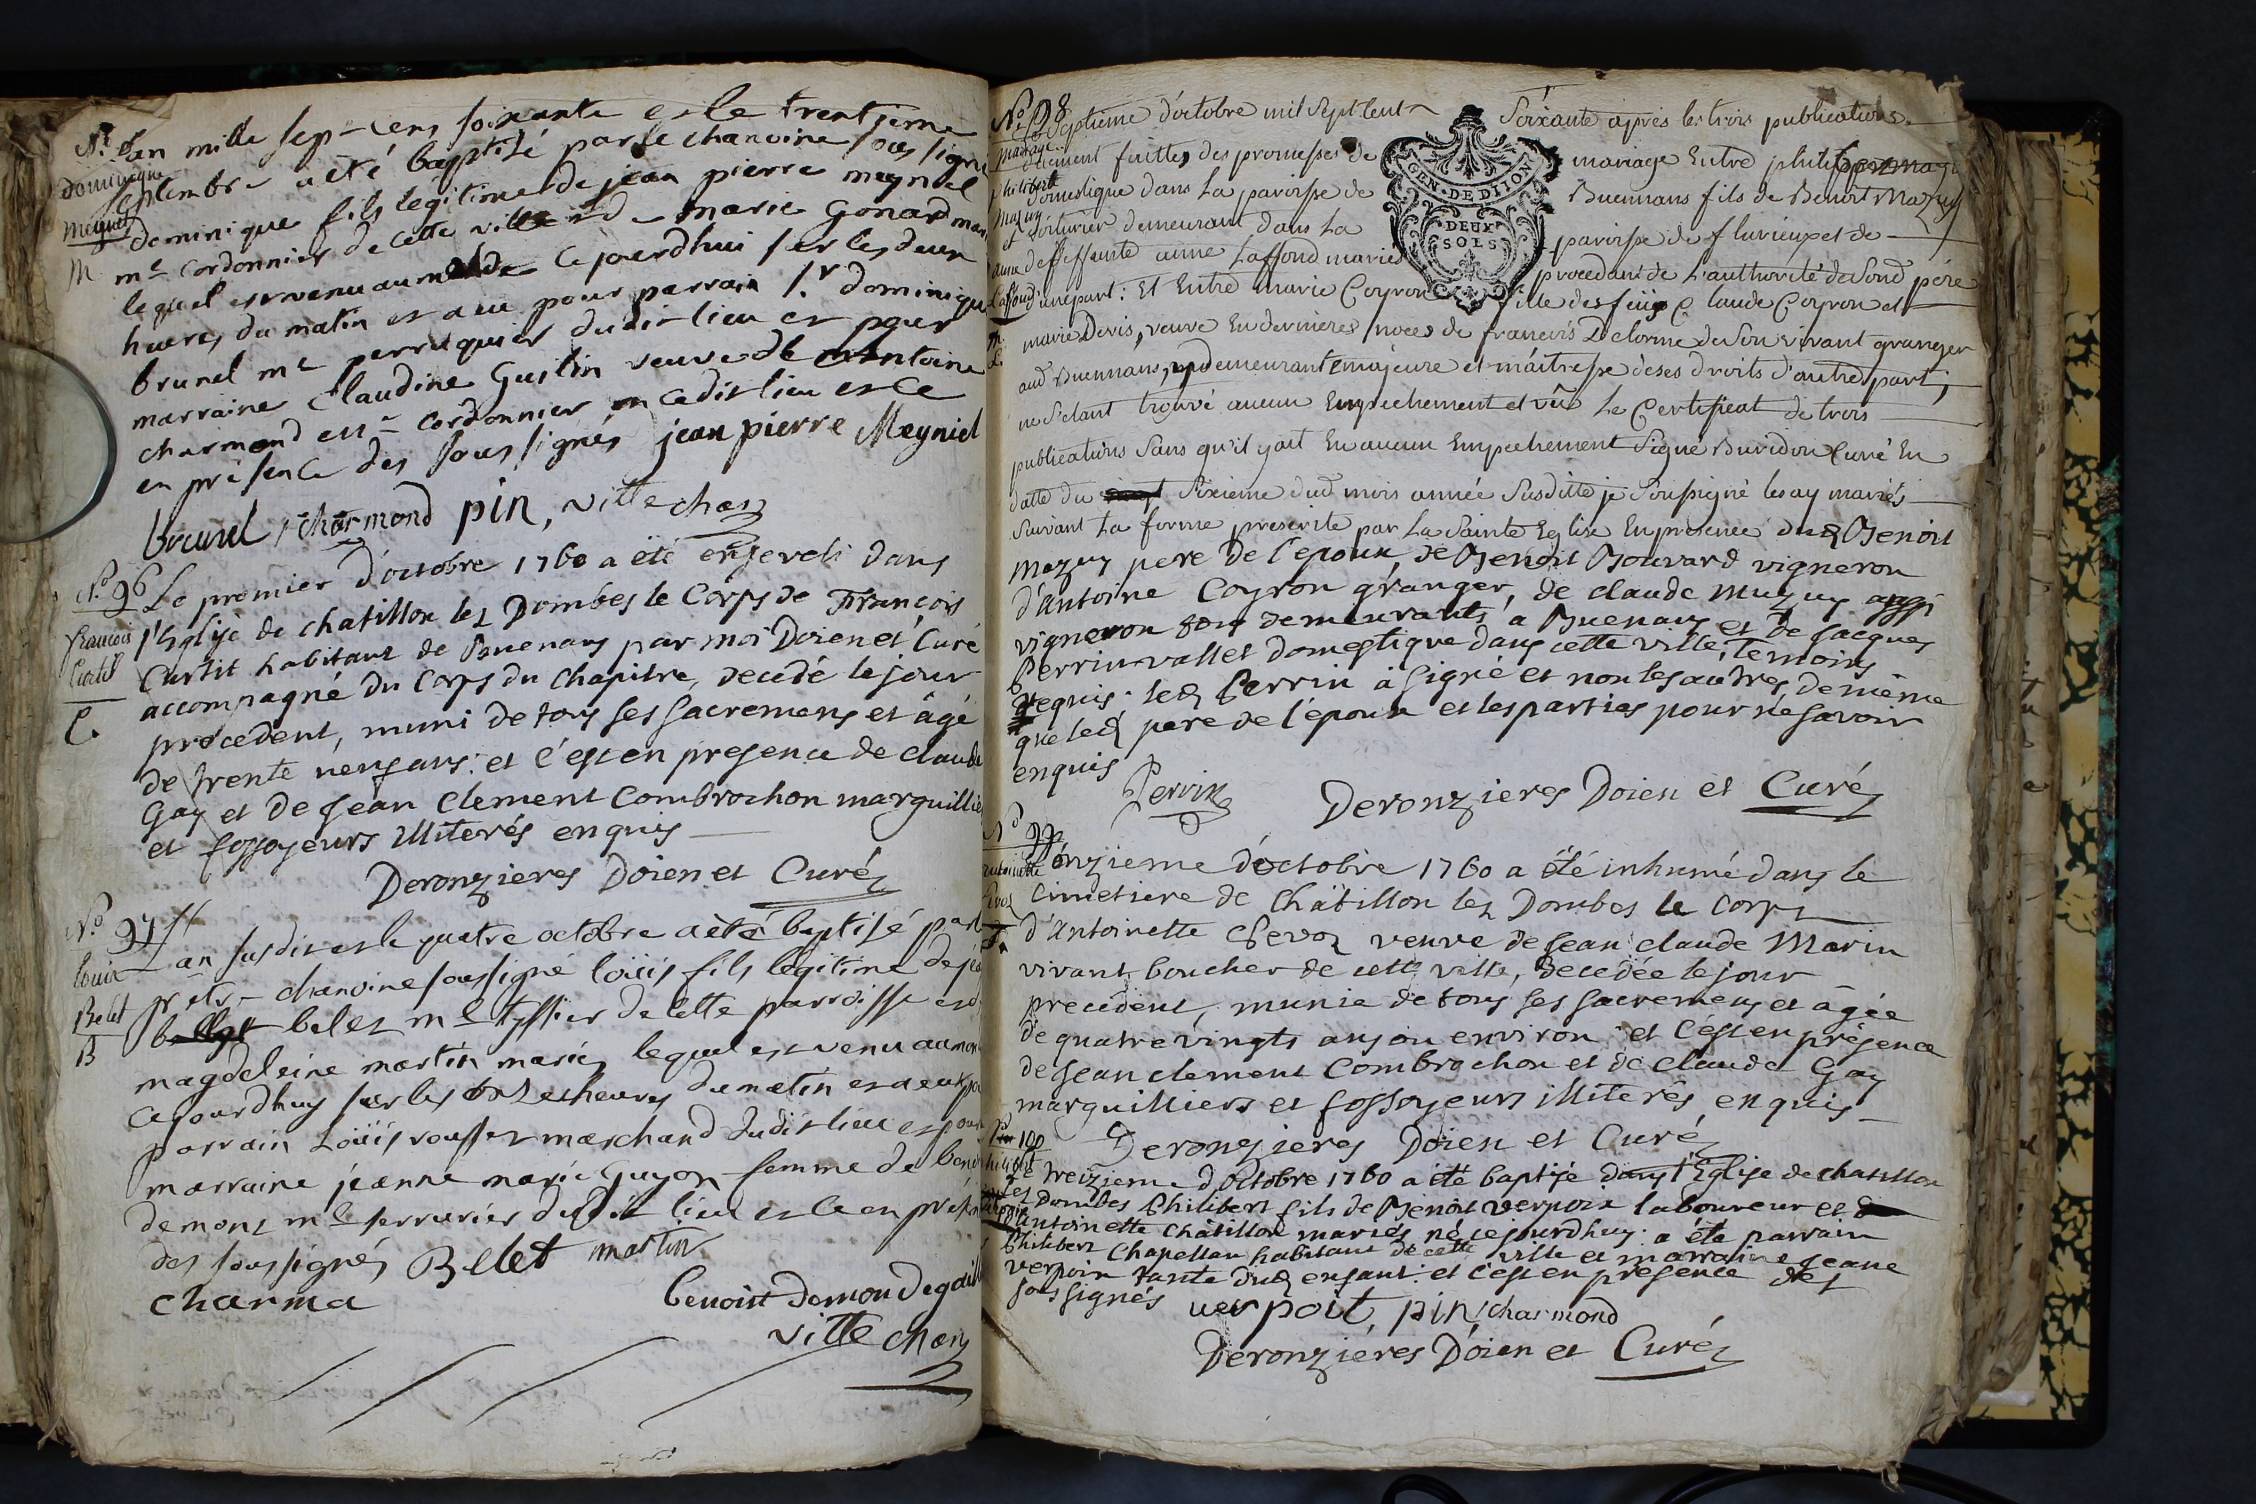 L'an mille sept-cens soixante et le trentieme
dominique
septembre a été baptisé par le chanoine sous signé
Meyniel
dominique fils legitime de jean pierre meyniel
M
mᵉ cordonnier de cette ville et de marie Gonard mariés
lequel est venu au monde ce jourdhui sur les deux
heures du matin et a eu pour parrain Sʳ dominique
brunel mᵉ perruquier dudit lieu et pour
marraine Claudine Gustin veuve de antoine
charmond cordonnier en cedit lieu et ce
en présence des soussignés jean pierre Meyniel
brunel charmond pin, ville chan
N.º 96
Le premier d'octobre 1760 a été enseveli dans
francois
l'Eglise de chatillon lez Dombes le Corps de François
Curtil
Curtit habitant de Buenans par moi Doien et Curé
accompagné du Corps du Chapitre, decedé le jour
C.
precedent, muni de tous ses sacremens et âgé
de trente neuf ans: et c'est en presence de claude
Gay et de Jean clement Combrochon marguilliers
et fossoyeurs illiterés enquis
Deronzieres Doien et Curé
N.º 97
L'an susdit et le quatre octobre a été baptisé par le
louis
prêtre chanoine soussigné loüis fils légitime de
Belet
belet mᵉ tissier de cette parroisse et
B
magdeleine martin mariés lequel est venu au monde
cejourdhuy sur les onze heures du matin et a eu pour
parrain Loüis rousset marchand dudit lieu et pour
marraine jeanne marie Guyon femme de benoit
demont mᵉ serrurier dudit lieu et ce en présence
des soussignés Belet martin
charma benoist demon Degail
ville chan
N.º 98
Le Septieme d'octobre mil sept cent Soixante après les trois publications
Mariage
düement faittes des promesses de mariage Entre philibert mazuy
philibert
domestique dans la paroisse de Buennans fils de Benoit Mazuy
Mazuy
voiturier demeurant dans la paroisse de flurieux et de
et
deffeunte anne Laffond mariés procedant de l'authorité de sond père
d'unepart: Et Entre marie Coyron fille des feüs Claude Coyron et
marie Devis, veuve En dernieres noces de francois Delorme de Son vivant granger
aud Buennans, y demeurant majeure et maitresse de ses droits d'autre part;
ne s'etant trouvé aucun Empechement et vû le Certificat de trois
publications Sans qu'il y ait Eu aucun Empechement Signé Buridon Curé En
datte du Sixieme dud mois année Susditte je Soussigné les ay mariés
Suivant La forme prescrite par La Sainte Eglise En presence dud Benoit
Mazuy pere de l'epoux, de Benoit Bouvard vigneron
d'Antoine Coyron granger, de claude Mazuy aussi
vigneron tous demeurants à Buenans et de Jacques
Perrin vallet domestique dans cette ville, temoins
requis: led Perrin à signé et non les autres de même
que led pere de l'epoux et les parties pour ne savoir
enquis
Perrin Deronzieres Doien et Curé
N.º 99
Le onzieme d'octobre 1760 a été inhumé dans le
cimetiere de Châtillon lez Dombes le corps
d'Antoinette Chevoz veuve de Jean claude Marin
vivant boucher de cette ville, decedée le jour
precedent, munie de tous ses sacremens et âgée
de quatre vingts ans ou environ: et c'est en présence
de Jean clement Combrochon et de claude Gay
marguilliers et fossoyeurs illiterés enquis
Deronzieres Doien et Curé
100
Le treizieme d'octobre 1760 a été baptisé dans l'Eglise de chatillon
lez Dombes Philibert fils de Benoit Verpoix laboureur et
d'Antoinette châtillon mariés né cejourdhuy: a été parrain
Philibert Chapellan habitant de cette ville et marraine Jeane
verpoix tante dud enfant: et c'est en présence des
soussignés verpoit, pin, charmond
Deronzieres Doien et Curé
GEN. DE DIJON
DEUX
SOLS